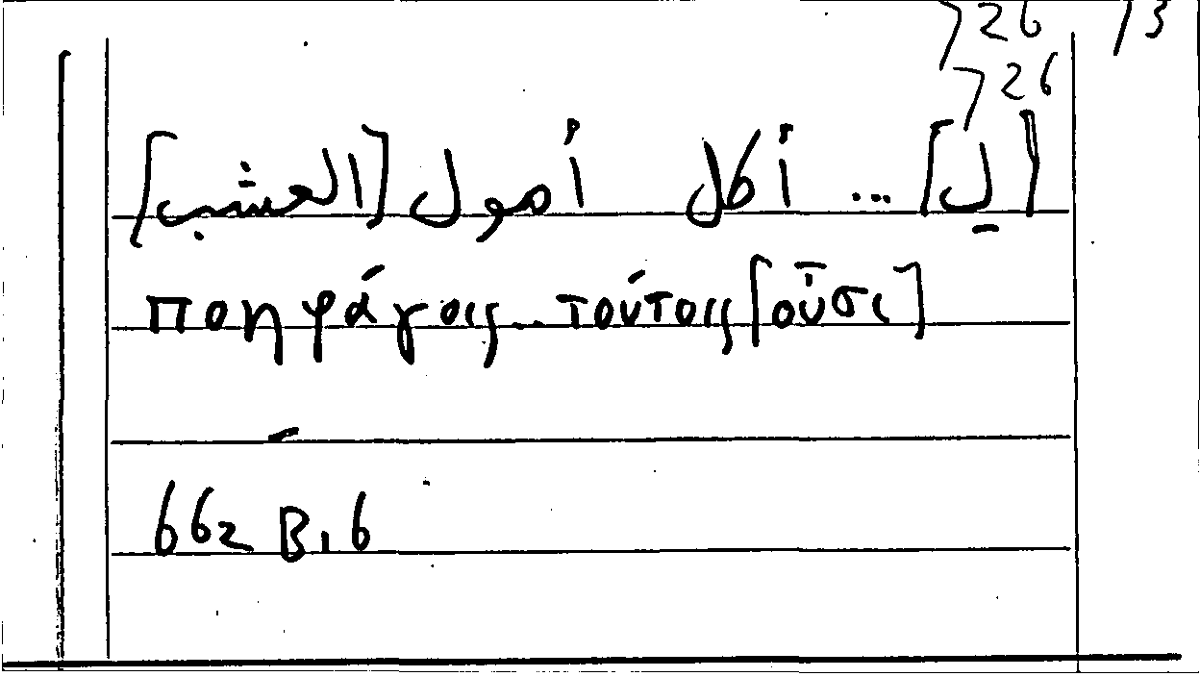 726 73
726
[لـ] ... أكل أصول [العشب]
ποηφάγοις .. τούτοις [οὖσι]
662 B, 6